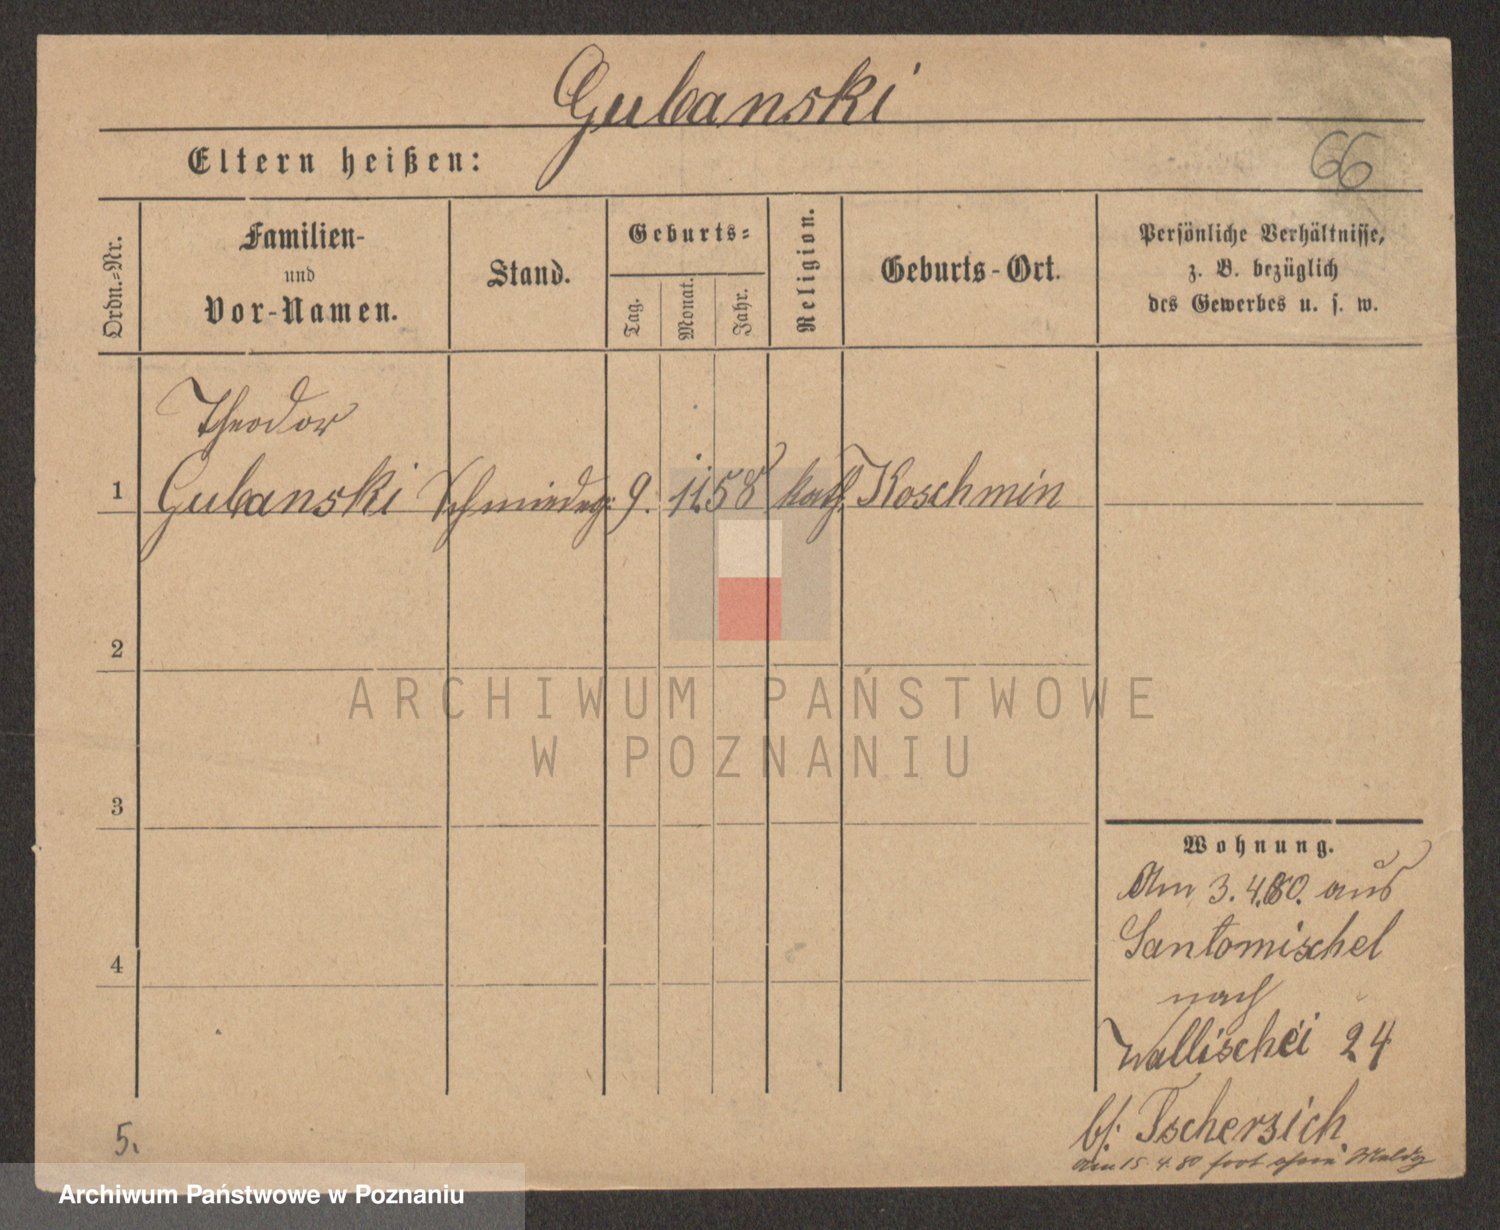 Gubanski
Eltern heißen:
66
Ordn.-Nr.
Familien-
und
Vor-Namen.
Stand.
Geburts-
Tag.
Monat.
Jahr.
Religion.
Geburts-Ort.
Persönliche Verhältnisse,
z. B. bezüglich
des Gewerbes u. s. w.
Theodor
1 Gubanski Schmiedeg: 9. 11. 58 kath. Koschmin
2
ARCHIWUM PAŃSTWOWE
W POZNANIU
3
Wohnung.
Am 3. 4. 80. aus
Santomischel
4
nach
Wallischei 24
bf. Tschersich
Am 15. 4. 80 fort ohne Meldg
5.
Archiwum Państwowe w Poznaniu